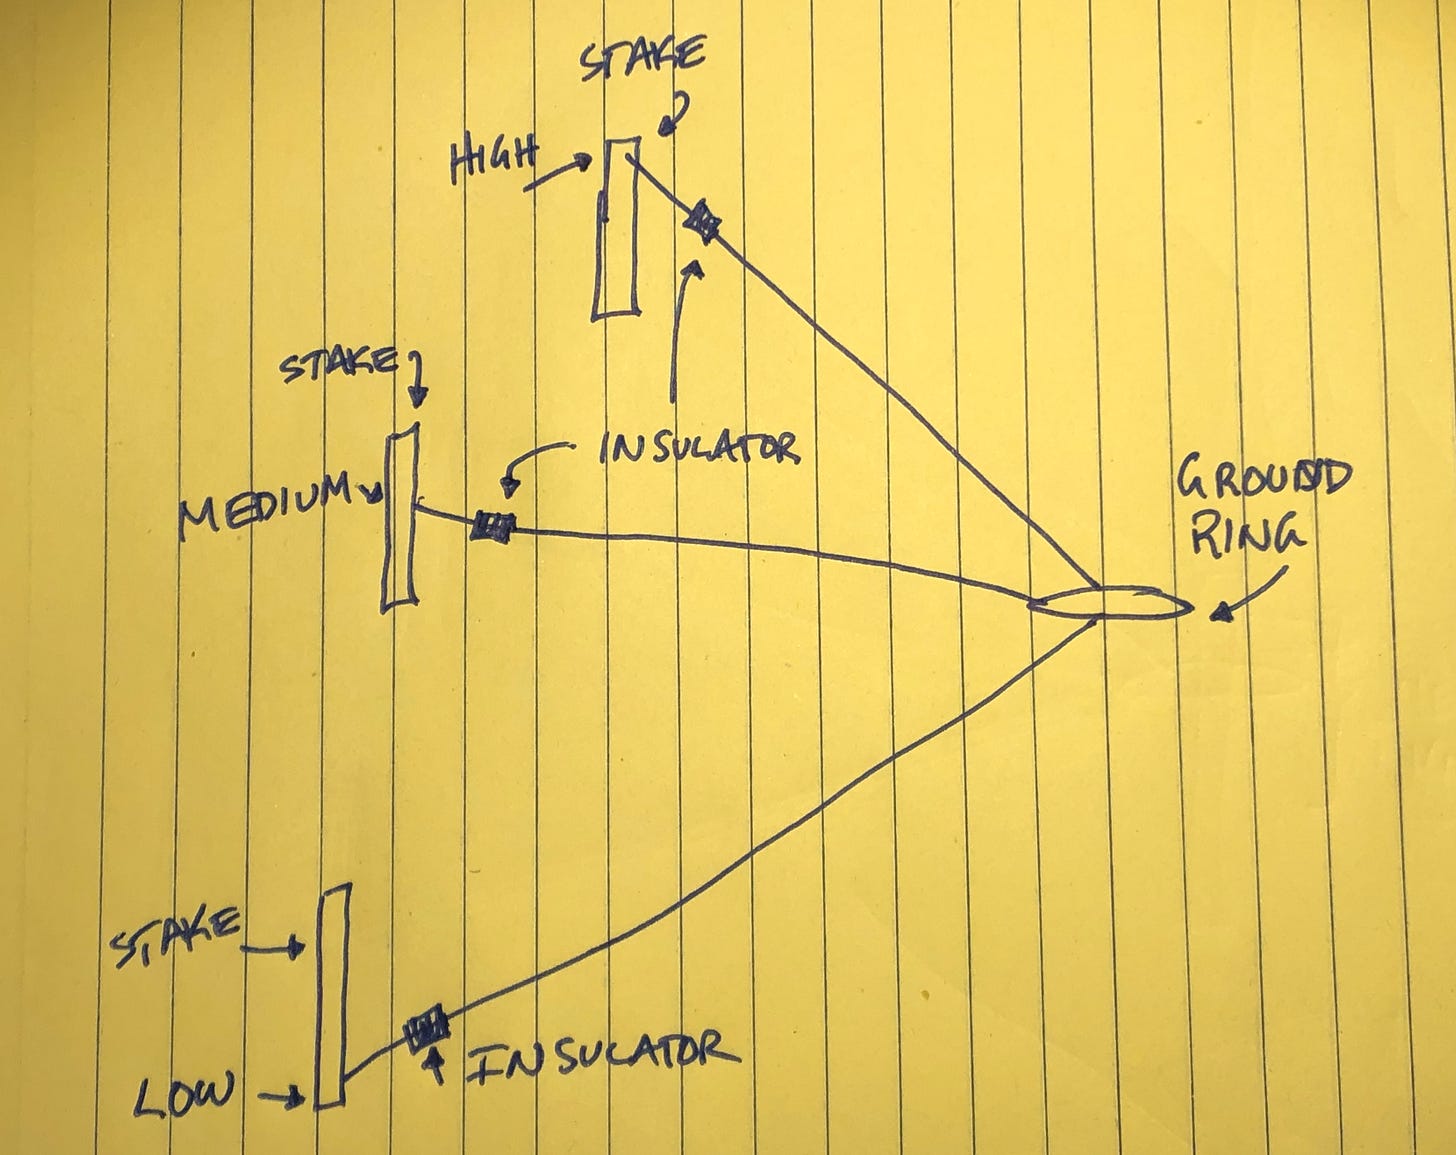 STAKE
HIGH
STAKE
MEDIUM
INSULATOR
GROUND
RING
STAKE
INSULATOR
LOW